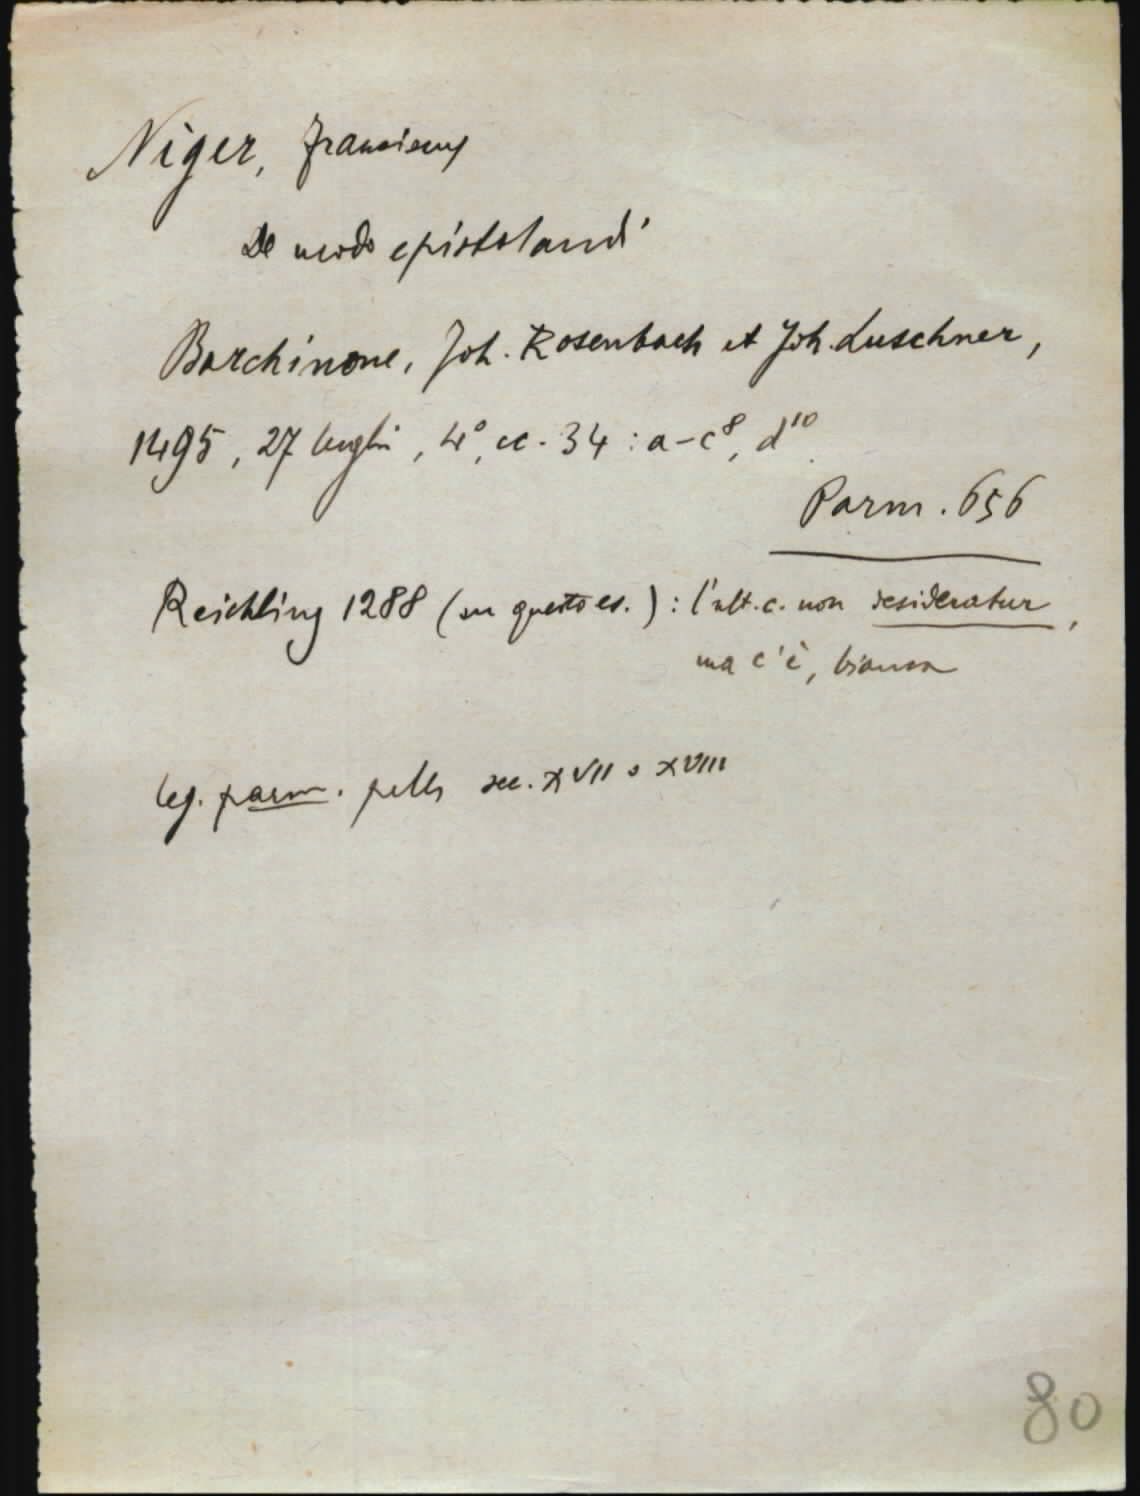 Niger, Franciscus
De modo epistolandi
Barchinone, Joh. Rosenbach et Joh. Luschner,
1495, 27 luglio, 4°, cc. 34 : a-c⁸, d¹⁰
Parm. 656
Reichling 1288 (su questo es.) : l'ult. c. non desideratur,
ma c'è, bianca
leg. parm. pelle sec. XVII o XVIII
80